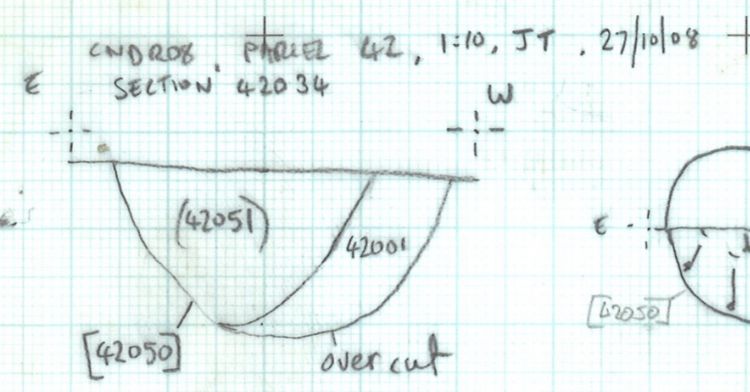 CNDR08, PARCEL 42, 1:10, JT, 27/10/08
SECTION 42034
E
W
(42051)
42001
E
[42050]
[42050]
over cut